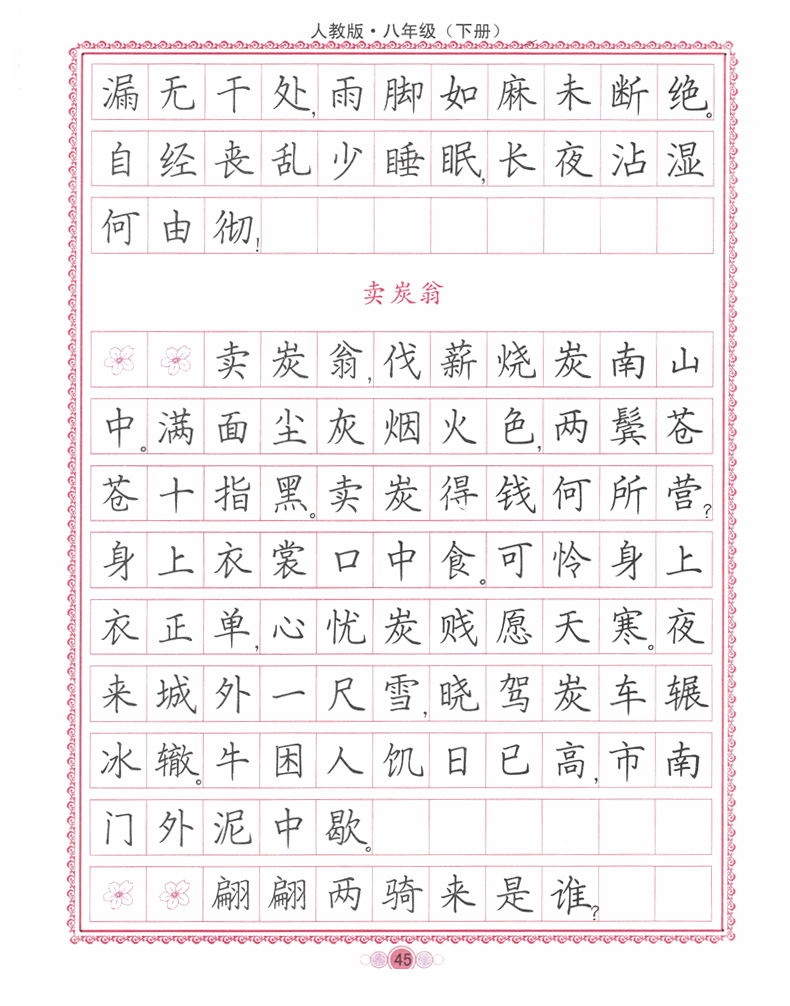 人教版·八年级（下册）
漏无干处,雨脚如麻未断绝。
自经丧乱少睡眠,长夜沾湿
何由彻!
卖炭翁
卖炭翁,伐薪烧炭南山
中。满面尘灰烟火色,两鬓苍
苍十指黑。卖炭得钱何所营?
身上衣裳口中食。可怜身上
衣正单,心忧炭贱愿天寒。夜
来城外一尺雪,晓驾炭车辗
冰辙。牛困人饥日已高,市南
门外泥中歇。
翩翩两骑来是谁?
45